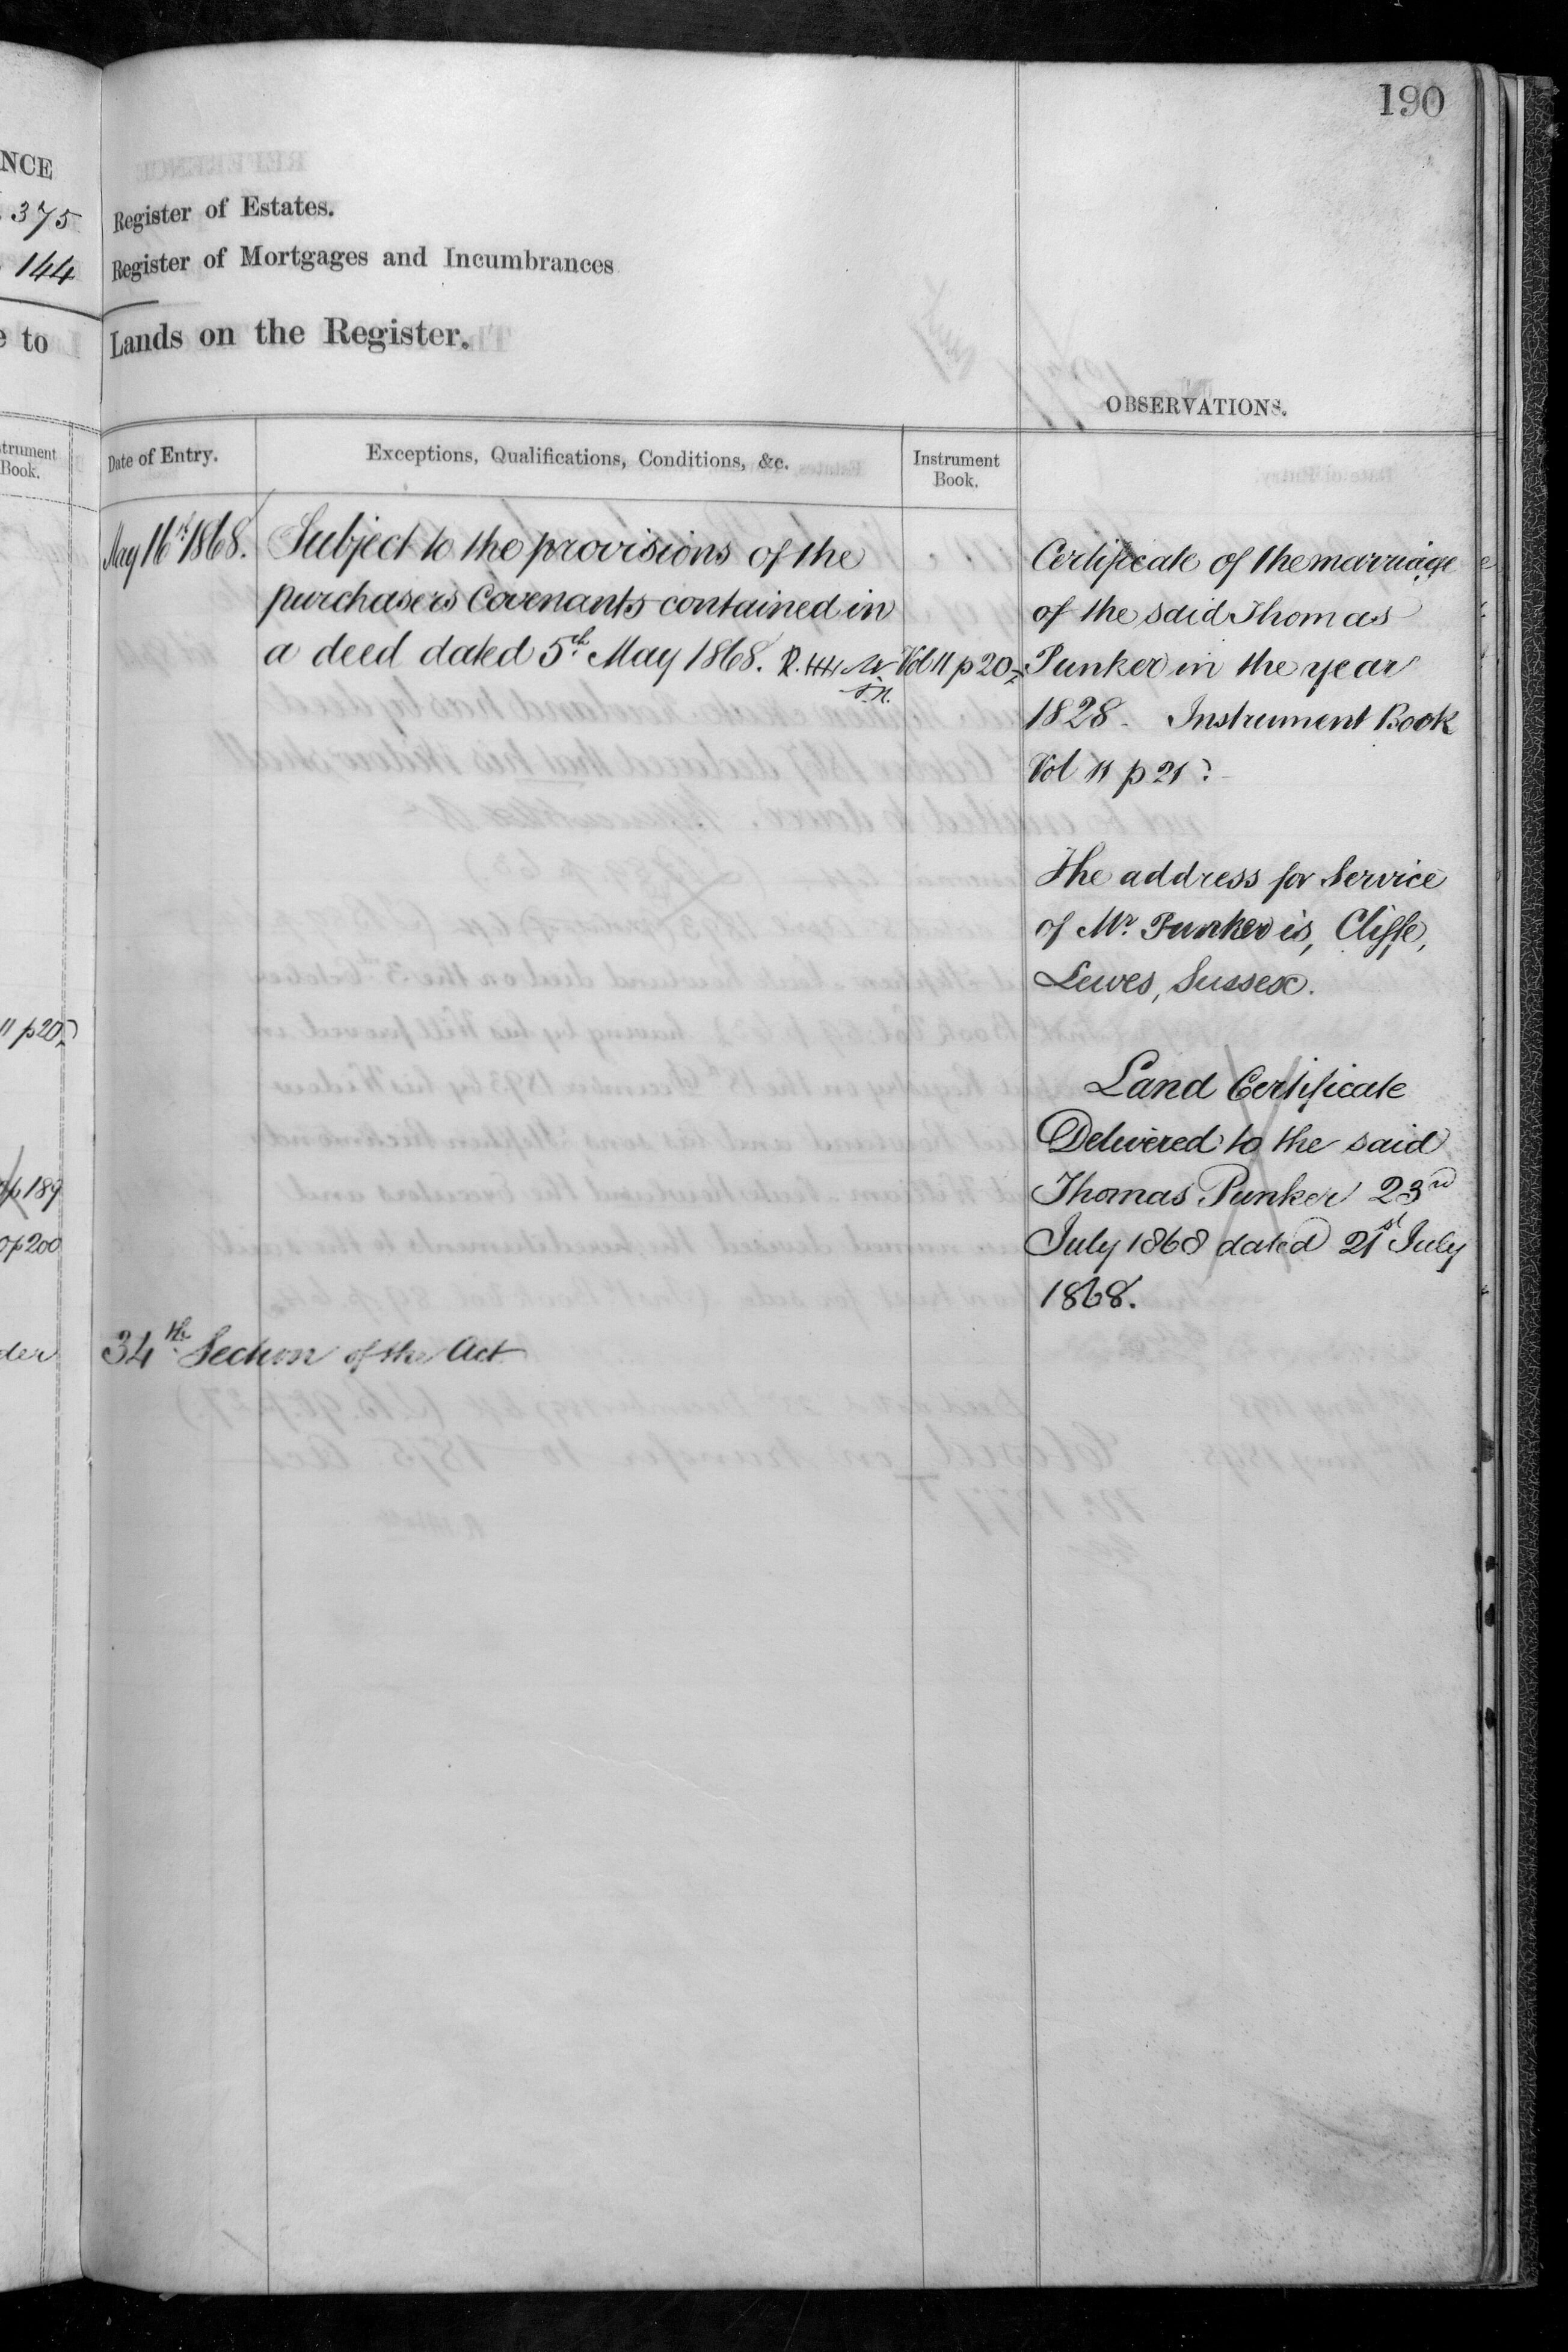 190
NCE
375
144
e to
Register of Estates.
Register of Mortgages and Incumbrances
Lands on the Register.
OBSERVATIONS.
strument
Book.
Date of Entry.
Exceptions, Qualifications, Conditions, &c.
Instrument
Book.
May 16th 1868.
Subject to the provisions of the
purchasers Covenants contained in
a deed dated 5th May 1868.
Vol 11 p 20
Certificate of the marriage
of the said Thomas
Punker in the year
1828 - Instrument Book
Vol 11 p 21
The address for Service
of Mr. Punker is, Cliffe,
Lewes, Sussex.
Land Certificate
Delivered to the said
Thomas Punker 23rd
July 1868 dated 21st July
1868.
11 p 20
p 189
p 200
der
34th Section of the Act